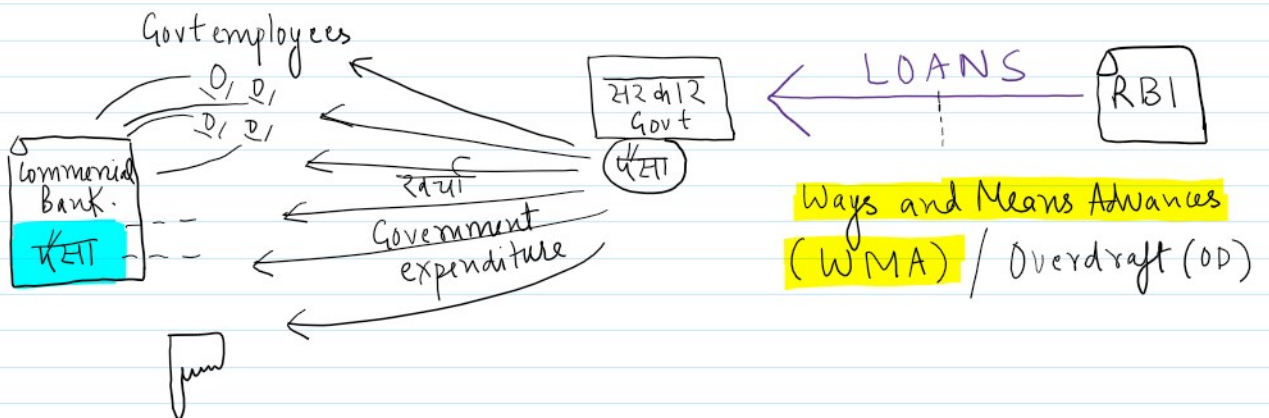 Govt employees
Commercial
Bank.
पैसा
सरकार
Govt
पैसा
खर्चा
Government
expenditure
LOANS
RBI
Ways and Means Advances
(WMA) / Overdraft (OD)